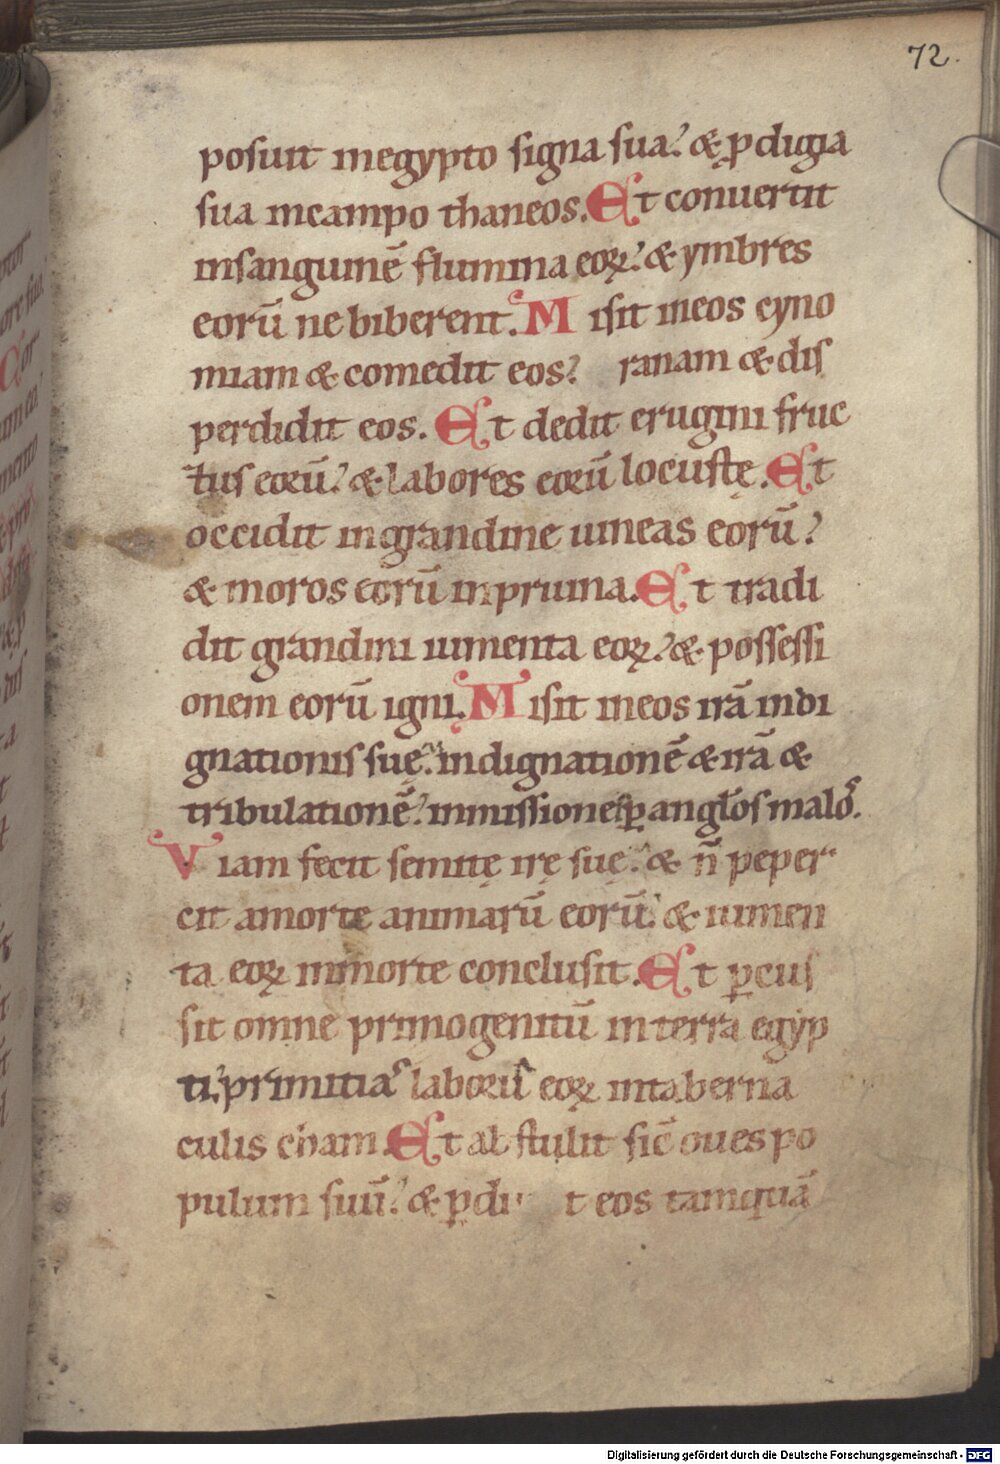 72.
posuit inegypto signa sua. & ꝓdigia
sua incampo thaneos. Et conuertit
insanguinē flumina eoꝝ. & ymbres
eorū ne biberent. Misit ineos cyno
miam & comedit eos. ranam & dis
perdidit eos. Et dedit erugini fruc
tus eorū. & labores eorū locustę. Et
occidit ingrandine uineas eorū.
& moros eorū inpruina. Et tradi
dit grandini iumenta eoꝝ. & possessi
onem eorū igni. Misit ineos irā indi
gnationis suę. indignationē & irā &
tribulationē. inmissiones ꝑ angłos maloꝝ.
Viam fecit semitę irę suę. & ñ peper
cit amorte animarū eorū. & iumen
ta eoꝝ inmorte conclusit. Et ꝑcus
sit omne primogenitū interra egyp
ti. primitias laborū eoꝝ intaberna
culis cham. Et abstulit sic̄ oues po
pulum suū. & ꝑdu t eos tamquā
Digitalisierung gefördert durch die Deutsche Forschungsgemeinschaft - DFG